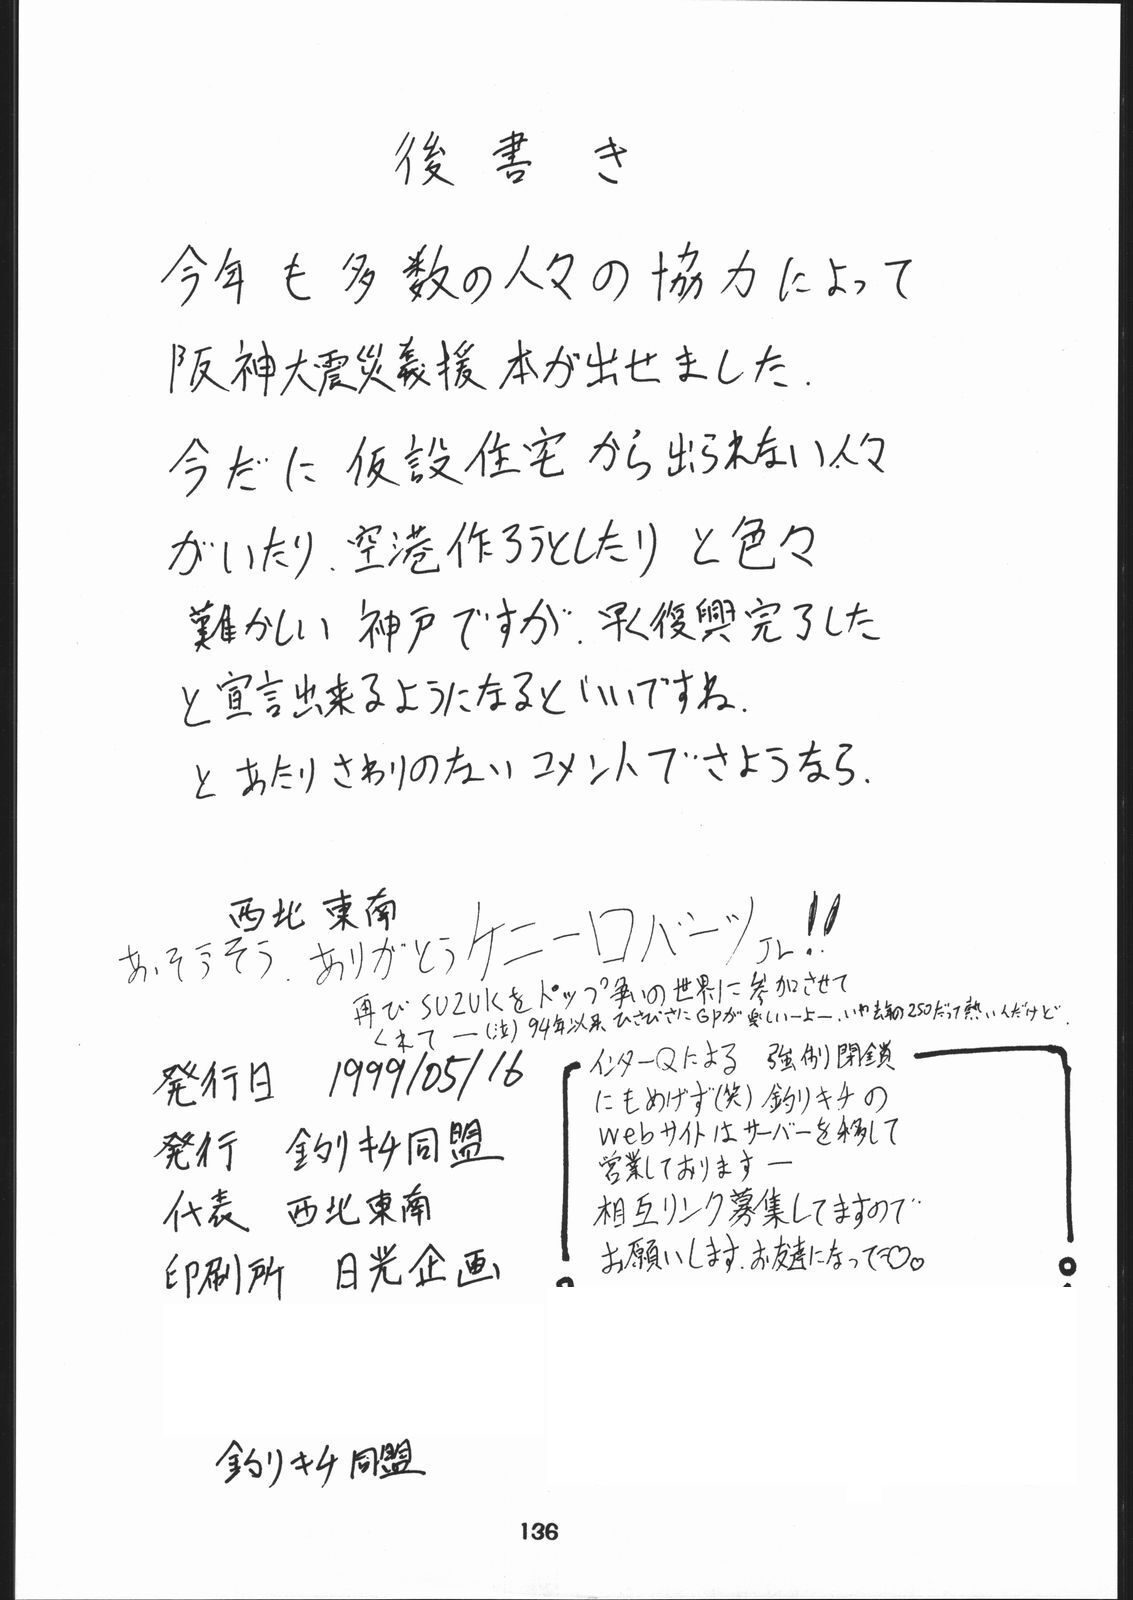 後書き
今年も多数の人々の協力によって
阪神大震災義援本が出せました.
今だに仮設住宅から出られない人々
がいたり.空港作ろうとしたりと色々
難かしい神戸ですが.早く復興完了した
と宣言出来るようになるといいですね.
とあたりさわりのないコメントでさようなら.
西北東南
あ,そうそう.ありがとうケニーロバーツJr!!
再びSUZUKIをトップ争いの世界に参加させて
くれてー(泣)94年以来ひさびさにGPが楽しいーよー.いや去年の250だって熱いんだけど.
発行日 1999/05/16
発行 釣りキチ同盟
代表 西北東南
印刷所 日光企画
インターQによる 強制閉鎖
にもめげず(笑)釣りキチの
webサイトはサーバーを移して
営業しておりますー
相互リンク募集してますので
お願いします.お友達になってー♡♡
釣りキチ同盟
136